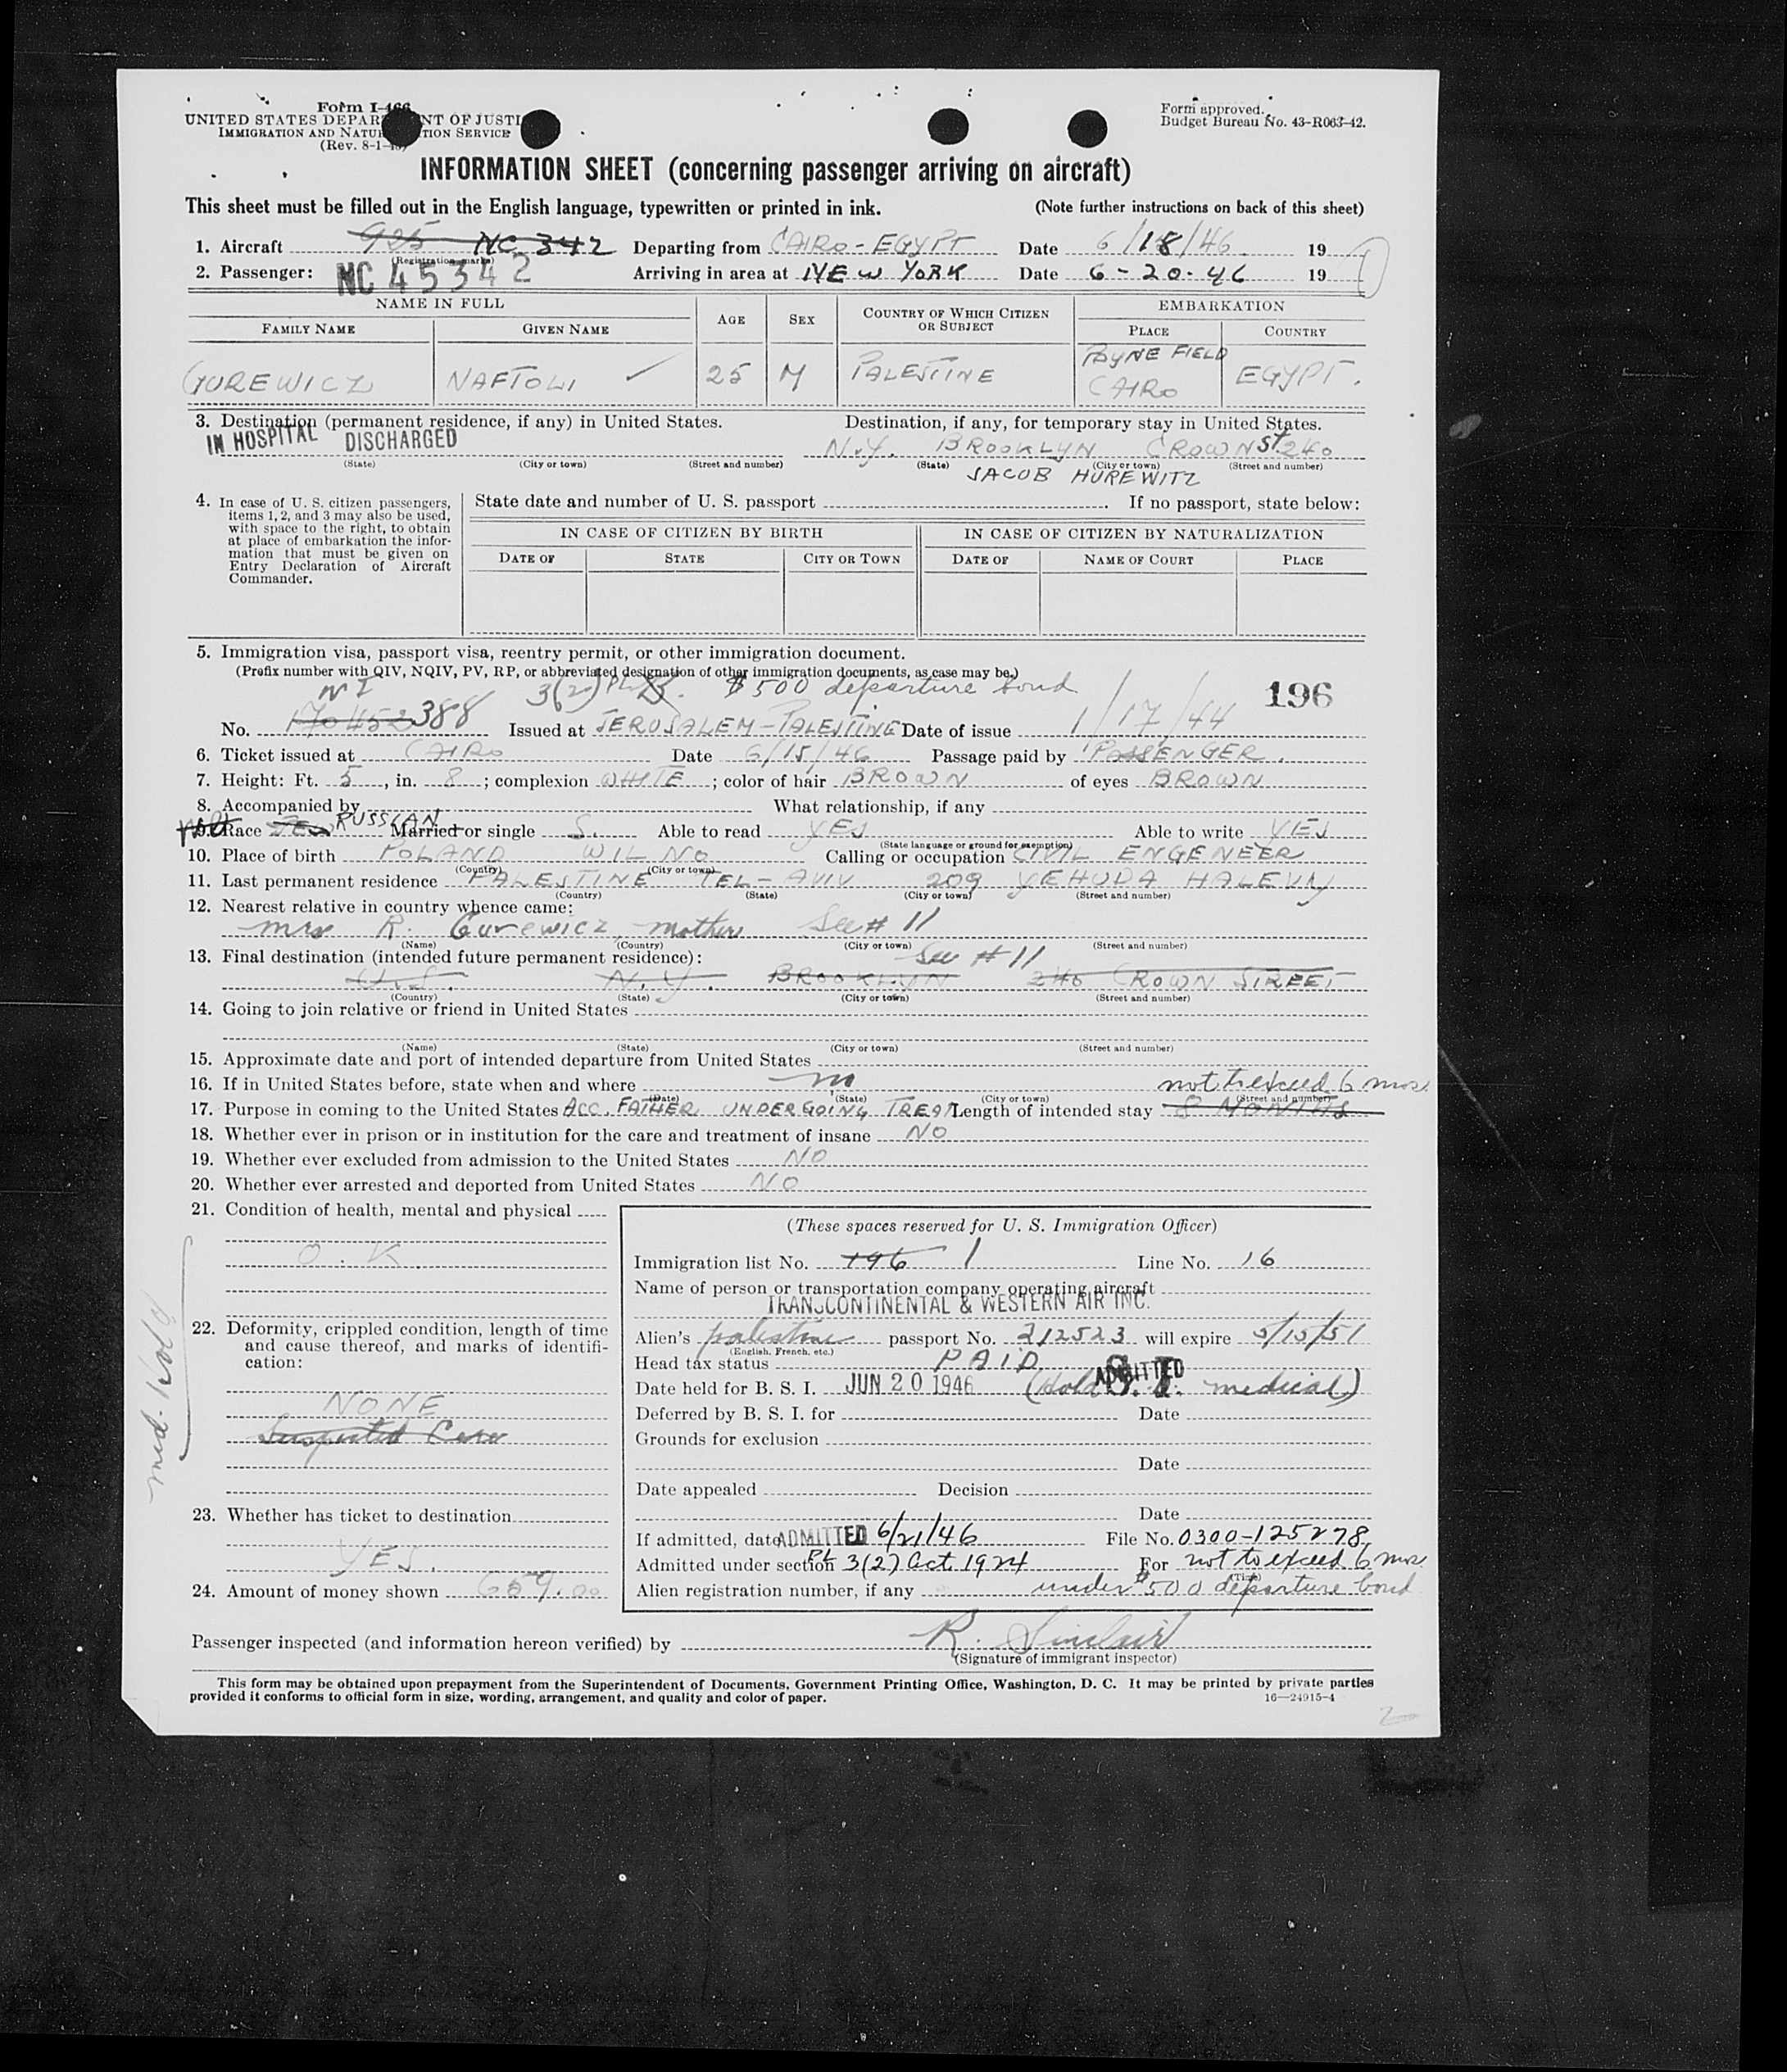 Form I-466
UNITED STATES DEPARTMENT OF JUSTICE
IMMIGRATION AND NATURALIZATION SERVICE
(Rev. 8-1-45)
Form approved.
Budget Bureau No. 43-R063-42.
INFORMATION SHEET (concerning passenger arriving on aircraft)
This sheet must be filled out in the English language, typewritten or printed in ink. (Note further instructions on back of this sheet)
1. Aircraft 925 NC 342 Departing from CAIRO - EGYPT Date 6/18/46 19
(Registration marks)
2. Passenger: NC 45342 Arriving in area at NEW YORK Date 6-20-46 19
NAME IN FULL AGE SEX COUNTRY OF WHICH CITIZEN OR SUBJECT EMBARKATION
FAMILY NAME GIVEN NAME PLACE COUNTRY
GUREWICZ NAFTOLI ✓ 25 M PALESTINE PAYNE FIELD CAIRO EGYPT.
3. Destination (permanent residence, if any) in United States. Destination, if any, for temporary stay in United States.
IN HOSPITAL DISCHARGED N.Y. BROOKLYN CROWN St. 240
(State) (City or town) (Street and number) (State) (City or town) (Street and number)
JACOB HUREWITZ
4. In case of U. S. citizen passengers, items 1, 2, and 3 may also be used, with space to the right, to obtain at place of embarkation the information that must be given on Entry Declaration of Aircraft Commander.
State date and number of U. S. passport If no passport, state below:
IN CASE OF CITIZEN BY BIRTH IN CASE OF CITIZEN BY NATURALIZATION
DATE OF STATE CITY OR TOWN DATE OF NAME OF COURT PLACE
5. Immigration visa, passport visa, reentry permit, or other immigration document.
(Prefix number with QIV, NQIV, PV, RP, or abbreviated designation of other immigration documents, as case may be.)
3(2) $500 departure bond 196
No. 388 Issued at JERUSALEM - PALESTINE Date of issue 1/17/44
6. Ticket issued at CAIRO Date 6/15/46 Passage paid by PASSENGER.
7. Height: Ft. 5, in. 8; complexion WHITE; color of hair BROWN of eyes BROWN
8. Accompanied by What relationship, if any
9. Race Jew RUSSIAN Married or single S. Able to read YES Able to write YES
(State language or ground for exemption)
10. Place of birth POLAND WILNO Calling or occupation CIVIL ENGENEER
(Country) (City or town)
11. Last permanent residence PALESTINE TEL-AVIV 209 YEHUDA HALEVY
(Country) (State) (City or town) (Street and number)
12. Nearest relative in country whence came:
Mrs R. Gurewicz, mother See # 11
(Name) (Country) (City or town) (Street and number)
13. Final destination (intended future permanent residence): See # 11
U.S. N.Y. BROOKLYN 240 CROWN STREET
(Country) (State) (City or town) (Street and number)
14. Going to join relative or friend in United States
(Name) (State) (City or town) (Street and number)
15. Approximate date and port of intended departure from United States
16. If in United States before, state when and where no not to exceed 6 mos
(Date) (State) (City or town) (Street and number)
17. Purpose in coming to the United States ACC. FATHER UNDERGOING TREAT Length of intended stay 8 MONTHS
18. Whether ever in prison or in institution for the care and treatment of insane NO
19. Whether ever excluded from admission to the United States NO
20. Whether ever arrested and deported from United States NO
21. Condition of health, mental and physical
O.K.
22. Deformity, crippled condition, length of time and cause thereof, and marks of identification:
NONE
med. Hold
23. Whether has ticket to destination
YES.
24. Amount of money shown 659.00
(These spaces reserved for U. S. Immigration Officer)
Immigration list No. 196 1 Line No. 16
Name of person or transportation company operating aircraft
TRANSCONTINENTAL & WESTERN AIR INC.
Alien's palestine passport No. 212523 will expire 5/15/51
(English, French, etc.)
Head tax status PAID
Date held for B. S. I. JUN 20 1946 (Hold S. I. medical) ADMITTED
Deferred by B. S. I. for Date
Grounds for exclusion
Date
Date appealed Decision
Date
If admitted, date ADMITTED 6/21/46 File No. 0300-125278
Admitted under section 3(2) Act 1924 For not to exceed 6 mos
(Time)
Alien registration number, if any under $500 departure bond
Passenger inspected (and information hereon verified) by R. Sinclair
(Signature of immigrant inspector)
This form may be obtained upon prepayment from the Superintendent of Documents, Government Printing Office, Washington, D. C. It may be printed by private parties
provided it conforms to official form in size, wording, arrangement, and quality and color of paper. 16—24915-4
2